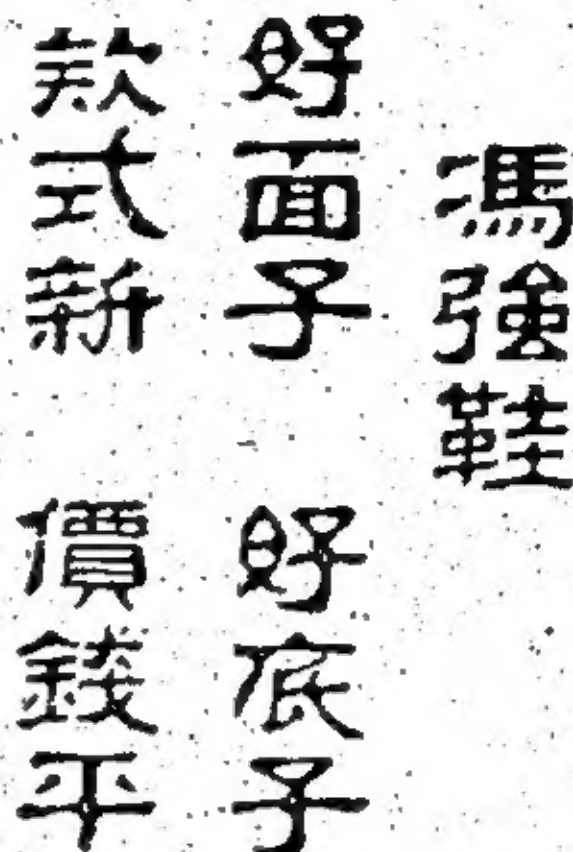 馮強鞋
好面子 好底子
欵式新 價錢平